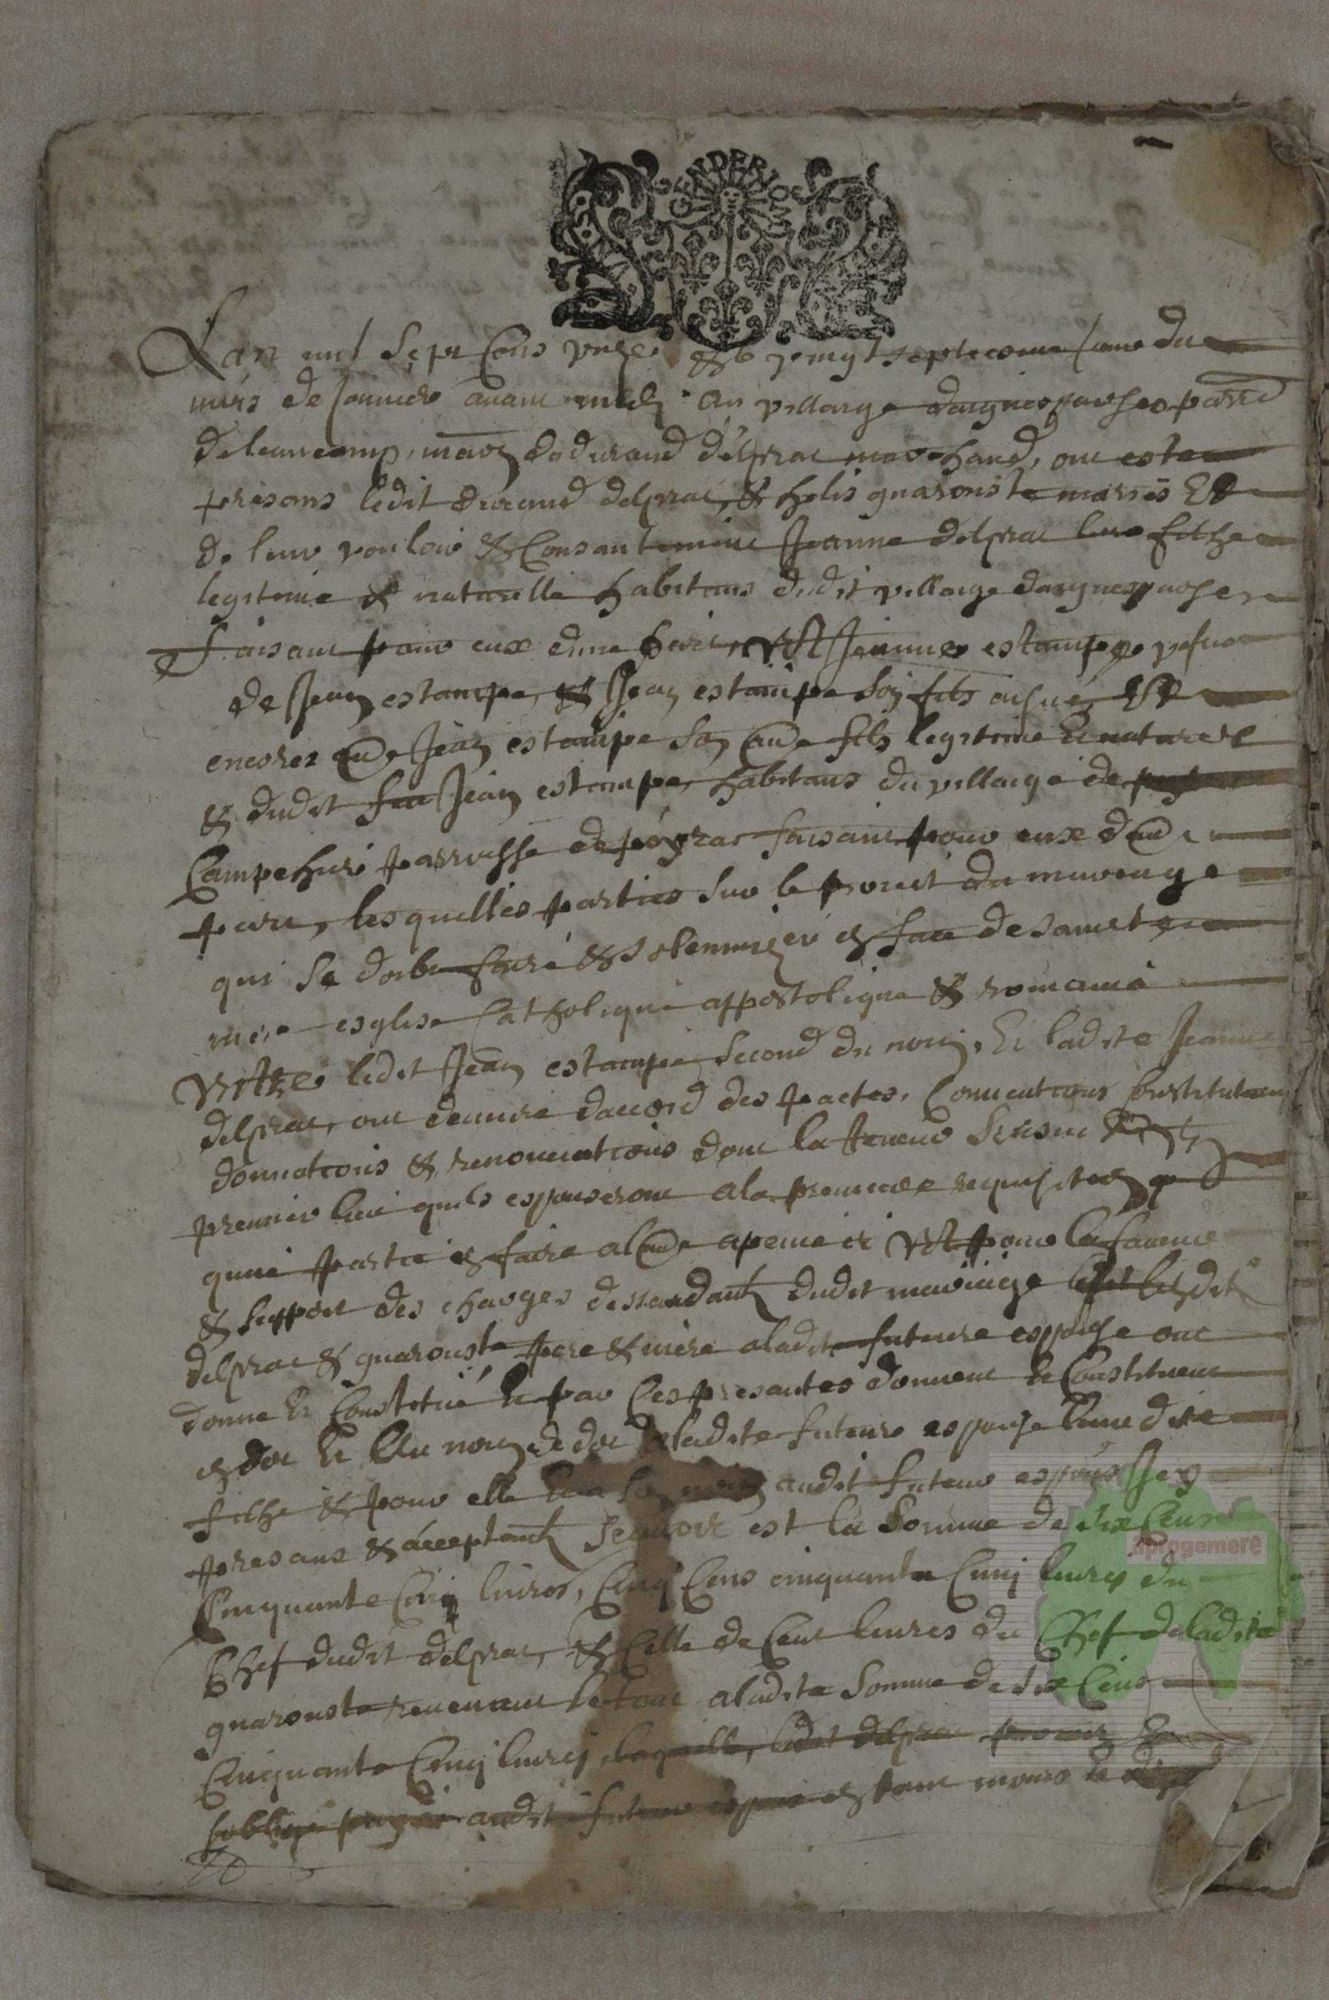 GENDERIO
Lan mil Sept Cens unze & le vingt septiesme jour du
mois de Janvier avant midy au villaige daignespause parr
de leuncamp, maison de durand delprat marchand, ont esté
presans ledit durand delprat, & helis quarouste mariés Et
de leur vouloir & Consantement Jeanne delprat leur filhe
legitime & naturelle habitans dudit villaige daignespause
faisant pour eux dune part, Et Jeanne estampe vefve
de Jean estampe, & Jean estampe son fils aisné Et
encores autre Jean estampe son autre fils legitime & naturel
& dudit feu Jean estampe, habitans du villaige de
Campehure parroisse de poyrac faisant pour eux dautre
part, lesquelles parties sur le proiet du mariage
qui se doibt faire & solemnizer en face de saincte
mere esglise Catholique appostolique & romaine
Entre ledit Jean estampe second du nom, Et ladite Jeanne
delprat, ont demuré daccord des pactes, Conventions institutions
donnations & renonciations dont la teneur sensuit
premierement quils espouseront a la premiere requisition
qune partie en faire a lautre a peine et Et pour la faveur
& support des charges dessandant dudit mariaige lesdits
delprat & quarouste pere & mere a ladite future espouse ont
donné Et Constitué Et par Ces presantes donnent & Constituent
en dot Et Au nom de dot a ladite future espouse leur dite
filhe & pour elle audit futeur espous Jean
presant & acceptant scavoir est la Somme de six Cens
Cinquante Cinq livres, Cinq Cens cinquante Cinq livres du
Chef dudit delprat, & Celle de Cent livres du Chef de ladite
quarouste revenant le tout a ladite Somme de six Cens
Cinquante Cinq livres laquelle, ledit delprat promet Et
soblige payer audit futeur espous estant moins de
aprogemere